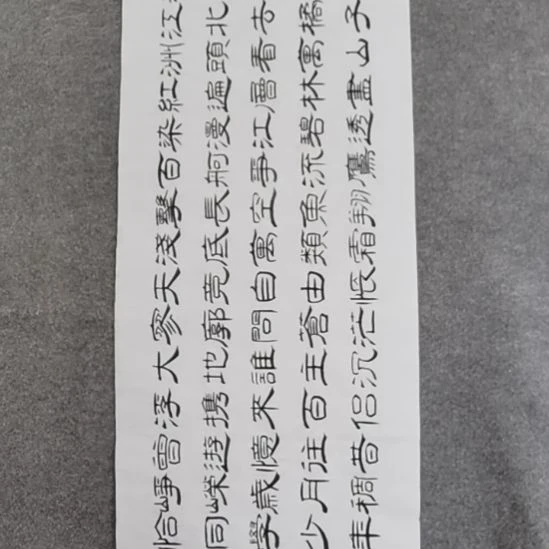 江北去橘子
洲頭看萬山
紅遍層林盡
染漫江碧透
百舸爭流鷹
擊長空魚翔
淺底萬類霜
天竞自由悵
寥廓問蒼茫
大地誰主沉
浮携來百侶
曾遊憶往昔
崢嶸歲月稠
恰同學少年